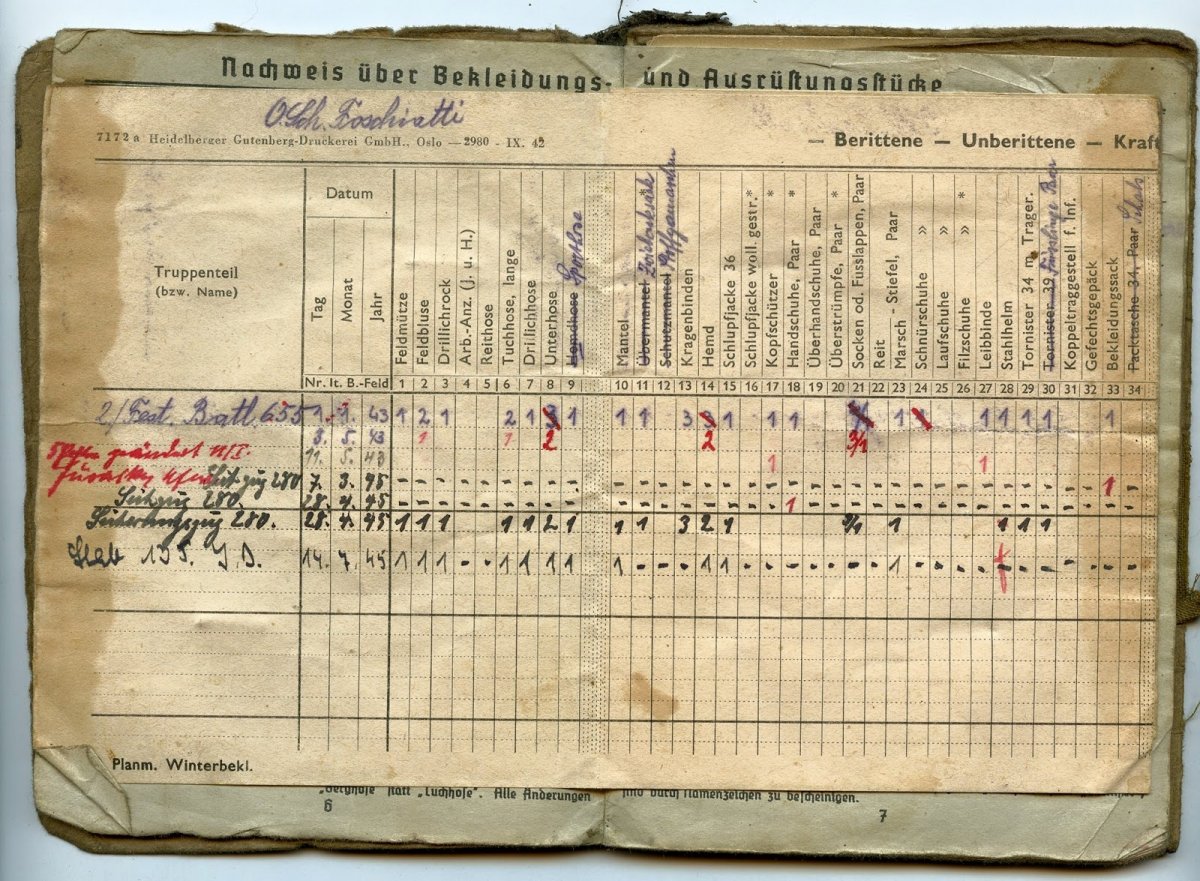 Nachweis über Bekleidungs- und Ausrüstungsstücke
O.Sch. Foschiatti
7172 a Heidelberger Gutenberg-Druckerei GmbH., Oslo — 2980 - IX. 42
— Berittene — Unberittene — Kraft
Truppenteil
(bzw. Name)
Datum
Tag
Monat
Jahr
Feldmütze
Feldbluse
Drillichrock
Arb.-Anz. (J. u. H.)
Reithose
Tuchhose, lange
Drillichhose
Unterhose
Hemdhose Sporthose
Mantel
Übermantel
Schutzmantel
Kragenbinden
Hemd
Schlupfjacke 36
Schlupfjacke woll. gestr.*
Kopfschützer *
Handschuhe, Paar *
Überhandschuhe, Paar
Überstrümpfe, Paar *
Socken od. Fusslappen, Paar
Reit
Marsch - Stiefel, Paar
Schnürschuhe »
Laufschuhe »
Filzschuhe » *
Leibbinde
Stahlhelm
Tornister 34 m. Trager.
Tornister 39
Koppeltraggestell f. Inf.
Gefechtsgepäck
Bekleidungssack
Packtasche 34, Paar
Nr. lt. B.-Feld 1 2 3 4 5 6 7 8 9 10 11 12 13 14 15 16 17 18 19 20 21 22 23 24 25 26 27 28 29 30 31 32 33 34
2/Fest. Batl. 655 1. 1. 43 1 2 1 2 1 3 1 1 1 3 3 1 1 1 1 1 1 1 1 1
3. 5. 43 1 1 2 2 3/1
geändert
11. 5. 43 1 1
280 7. 3. 45 - - - - - - - - - - - - - - - - - - - - - - - 1 -
280 28. 4. 45 - - - - - - - - - 1 - - - - - - - - -
280. 28. 4. 45 1 1 1 1 1 2 1 1 1 3 2 1 1 1 1 1
Stab 195. J.D. 14. 7. 45 1 1 1 - - 1 1 1 1 1 - - - 1 1 - - - - - - - 1 - - - - - - - - - -
Planm. Winterbekl.
„Berghose statt „Tuchhose". Alle Änderungen sind durch Namenzeichen zu bescheinigen.
6
7